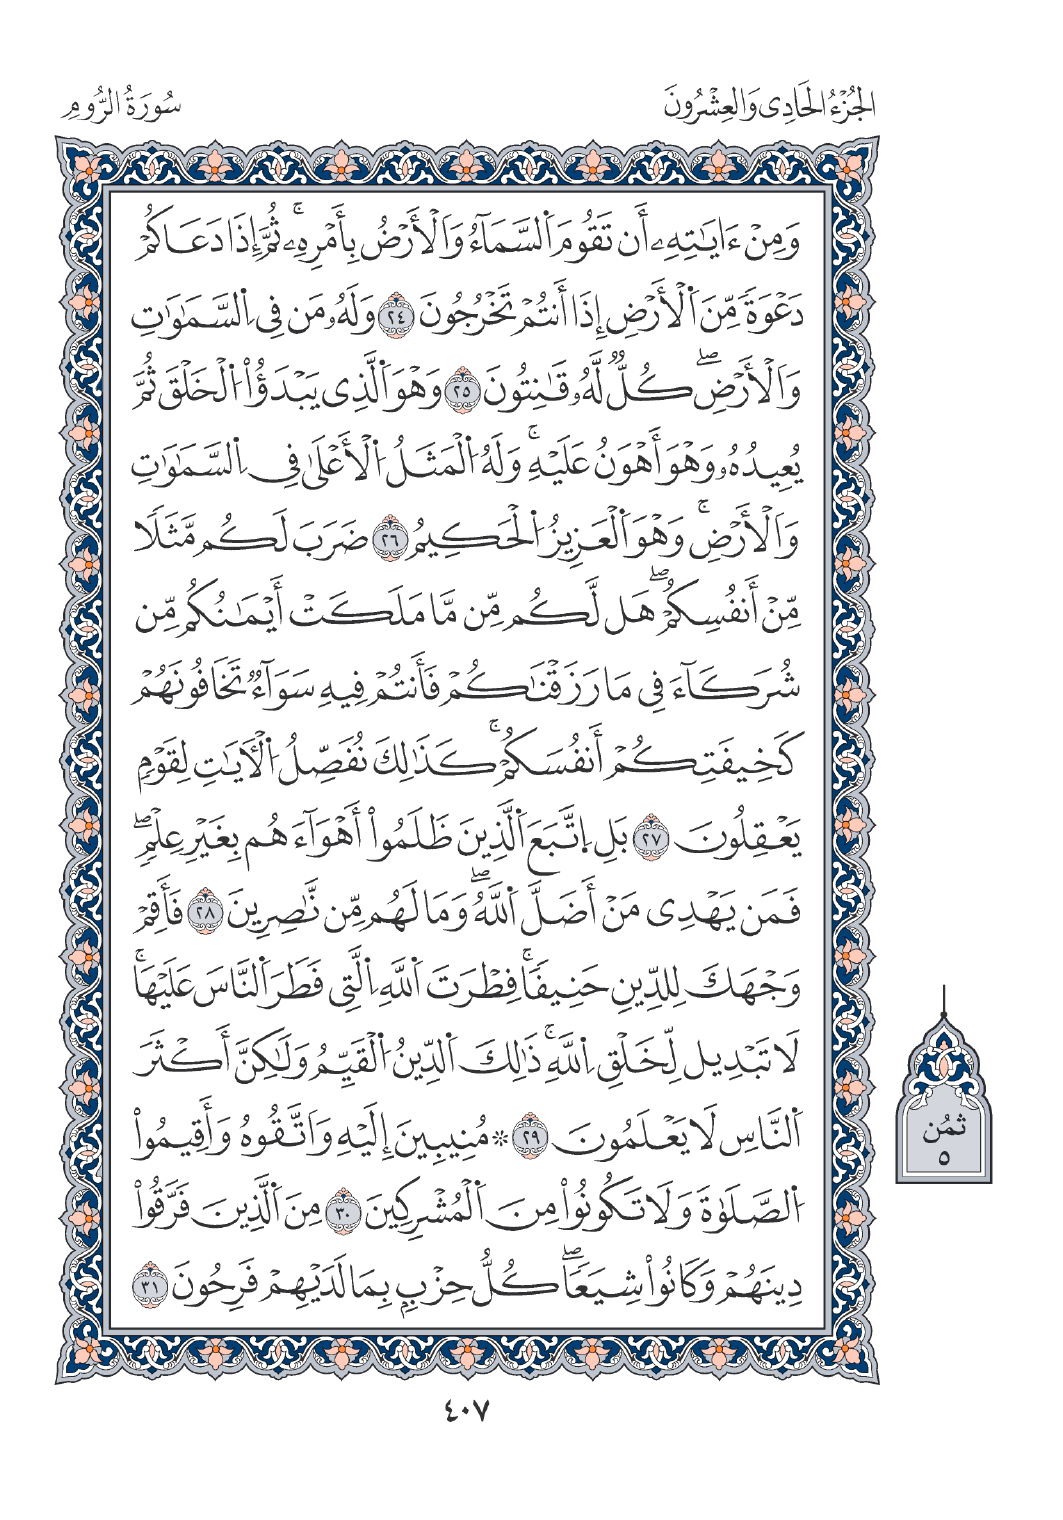 الجُزْءُ الحَادِى وَالعِشْرُونَ
سُورَةُ الرُّومِ
وَمِنْ ءَايَٰتِهِۦ أَن تَقُومَ اَ۬لسَّمَآءُ وَالْأَرْضُ بِأَمْرِهِۦۚ ثُمَّ إِذَا دَعَاكُمْ
دَعْوَةٗ مِّنَ اَ۬لْأَرْضِ إِذَا أَنتُمْ تَخْرُجُونَ ٢٤ وَلَهُۥ مَن فِى اِ۬لسَّمَٰوَٰتِ
وَالْأَرْضِۖ كُلّٞ لَّهُۥ قَٰنِتُونَ ٢٥ وَهْوَ اَ۬لَّذِى يَبْدَؤُاْ اُ۬لْخَلْقَ ثُمَّ
يُعِيدُهُۥ وَهْوَ أَهْوَنُ عَلَيْهِۚ وَلَهُ اُ۬لْمَثَلُ اُ۬لْأَعْلَىٰ فِى اِ۬لسَّمَٰوَٰتِ
وَالْأَرْضِۚ وَهْوَ اَ۬لْعَزِيزُ اُ۬لْحَكِيمُ ٢٦ ضَرَبَ لَكُم مَّثَلٗا
مِّنْ أَنفُسِكُمْۖ هَل لَّكُم مِّن مَّا مَلَكَتْ أَيْمَٰنُكُم مِّن
شُرَكَآءَ فِى مَا رَزَقْنَٰكُمْ فَأَنتُمْ فِيهِ سَوَآءٞ تَخَافُونَهُمْ
كَخِيفَتِكُمْ أَنفُسَكُمْۚ كَذَٰلِكَ نُفَصِّلُ اُ۬لْأٓيَٰتِ لِقَوْمٖ
يَعْقِلُونَ ٢٧ بَلِ اِ۪تَّبَعَ اَ۬لَّذِينَ ظَلَمُواْ أَهْوَآءَهُم بِغَيْرِ عِلْمٖۖ
فَمَن يَهْدِى مَنْ أَضَلَّ اَ۬للَّهُۖ وَمَا لَهُم مِّن نَّٰصِرِينَ ٢٨ فَأَقِمْ
وَجْهَكَ لِلدِّينِ حَنِيفٗاۚ فِطْرَتَ اَ۬للَّهِ اِ۬لَّتِى فَطَرَ اَ۬لنَّاسَ عَلَيْهَاۚ
لَا تَبْدِيلَ لِخَلْقِ اِ۬للَّهِۚ ذَٰلِكَ اَ۬لدِّينُ اُ۬لْقَيِّمُ وَلَٰكِنَّ أَكْثَرَ
اَ۬لنَّاسِ لَا يَعْلَمُونَ ٢٩ ۞ مُنِيبِينَ إِلَيْهِ وَاتَّقُوهُ وَأَقِيمُواْ
اُ۬لصَّلَوٰةَ وَلَا تَكُونُواْ مِنَ اَ۬لْمُشْرِكِينَ ٣٠ مِنَ اَ۬لَّذِينَ فَرَّقُواْ
دِينَهُمْ وَكَانُواْ شِيَعٗاۖ كُلُّ حِزْبِۭ بِمَا لَدَيْهِمْ فَرِحُونَ ٣١
ثمُن
٥
٤٠٧